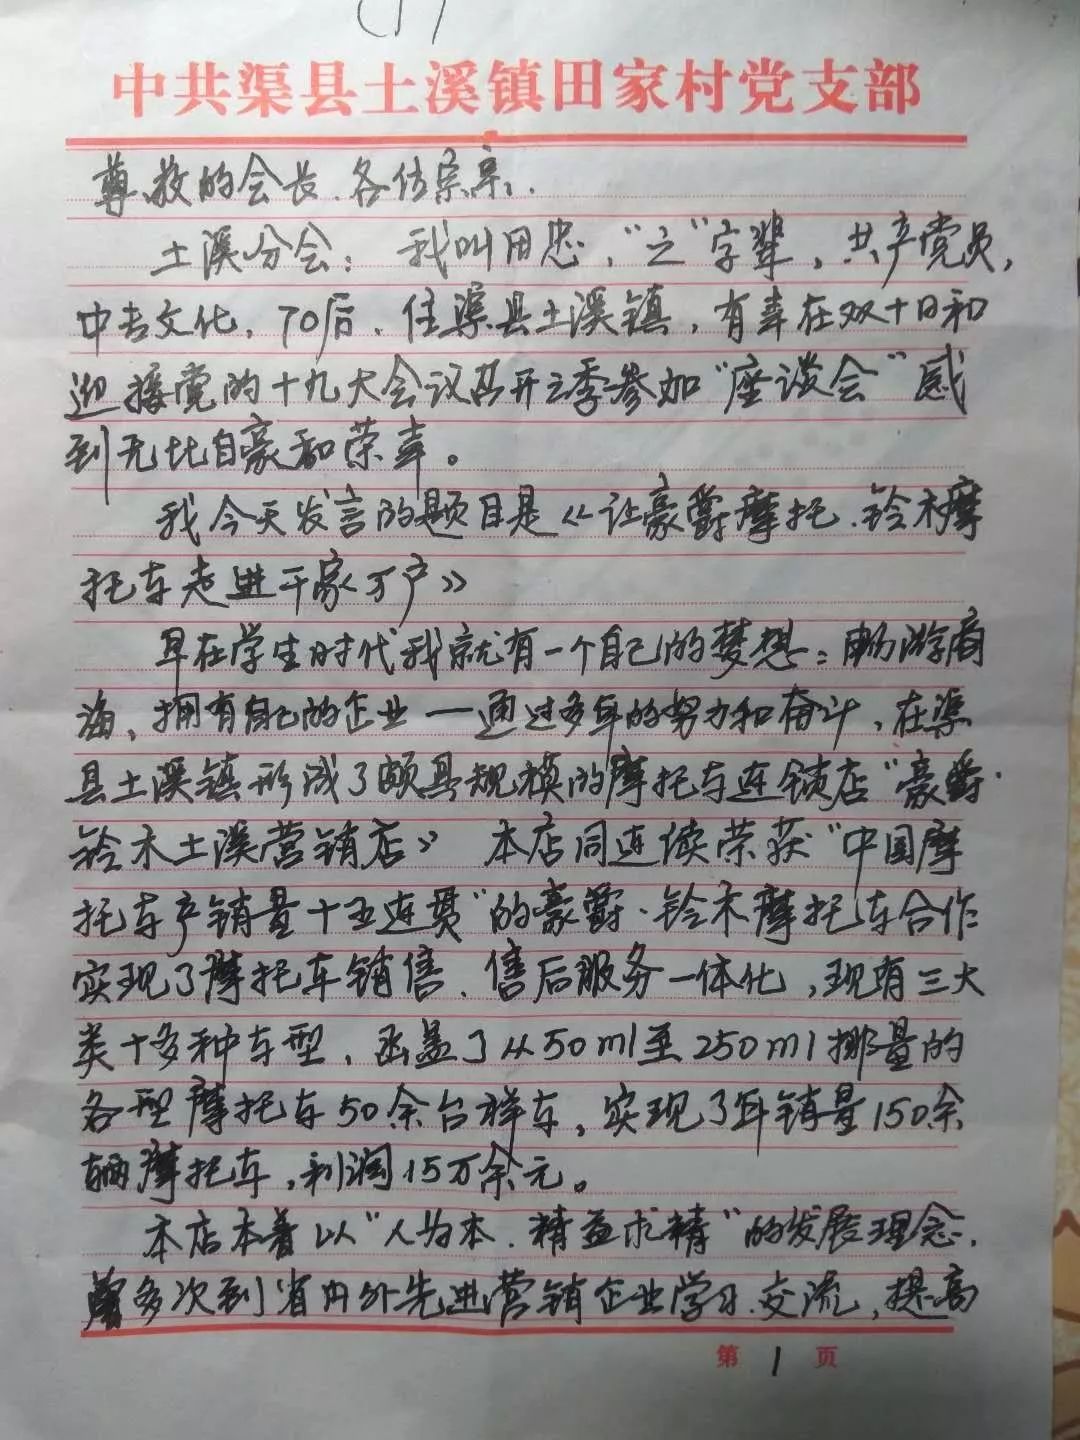 (1)
中共渠县土溪镇田家村党支部
尊敬的会长、各位宗亲:
土溪分会:我叫田忠,“之”字辈,共产党员,
中专文化,70后,住渠县土溪镇,有幸在双十日和
迎接党的十九大会议召开之季参加“座谈会”感
到无比自豪和荣幸。
我今天发言的题目是《让豪爵摩托、铃木摩
托车走进千家万户》
早在学生时代我就有一个自己的梦想:畅游商
海,拥有自己的企业——通过多年的努力和奋斗,在渠
县土溪镇形成了颇具规模的摩托车连锁店“豪爵·
铃木土溪营销店》 本店同连续荣获“中国摩
托车产销量十五连贯”的豪爵·铃木摩托车合作
实现了摩托车销售、售后服务一体化,现有三大
类十多种车型,函盖了从50ml至250ml挪量的
各型摩托车50余台样车,实现了年销量150余
辆摩托车,利润15万余元。
本店本着以“人为本、精益求精”的发展理念,
多次到省内外先进营销企业学习、交流,提高
第1页